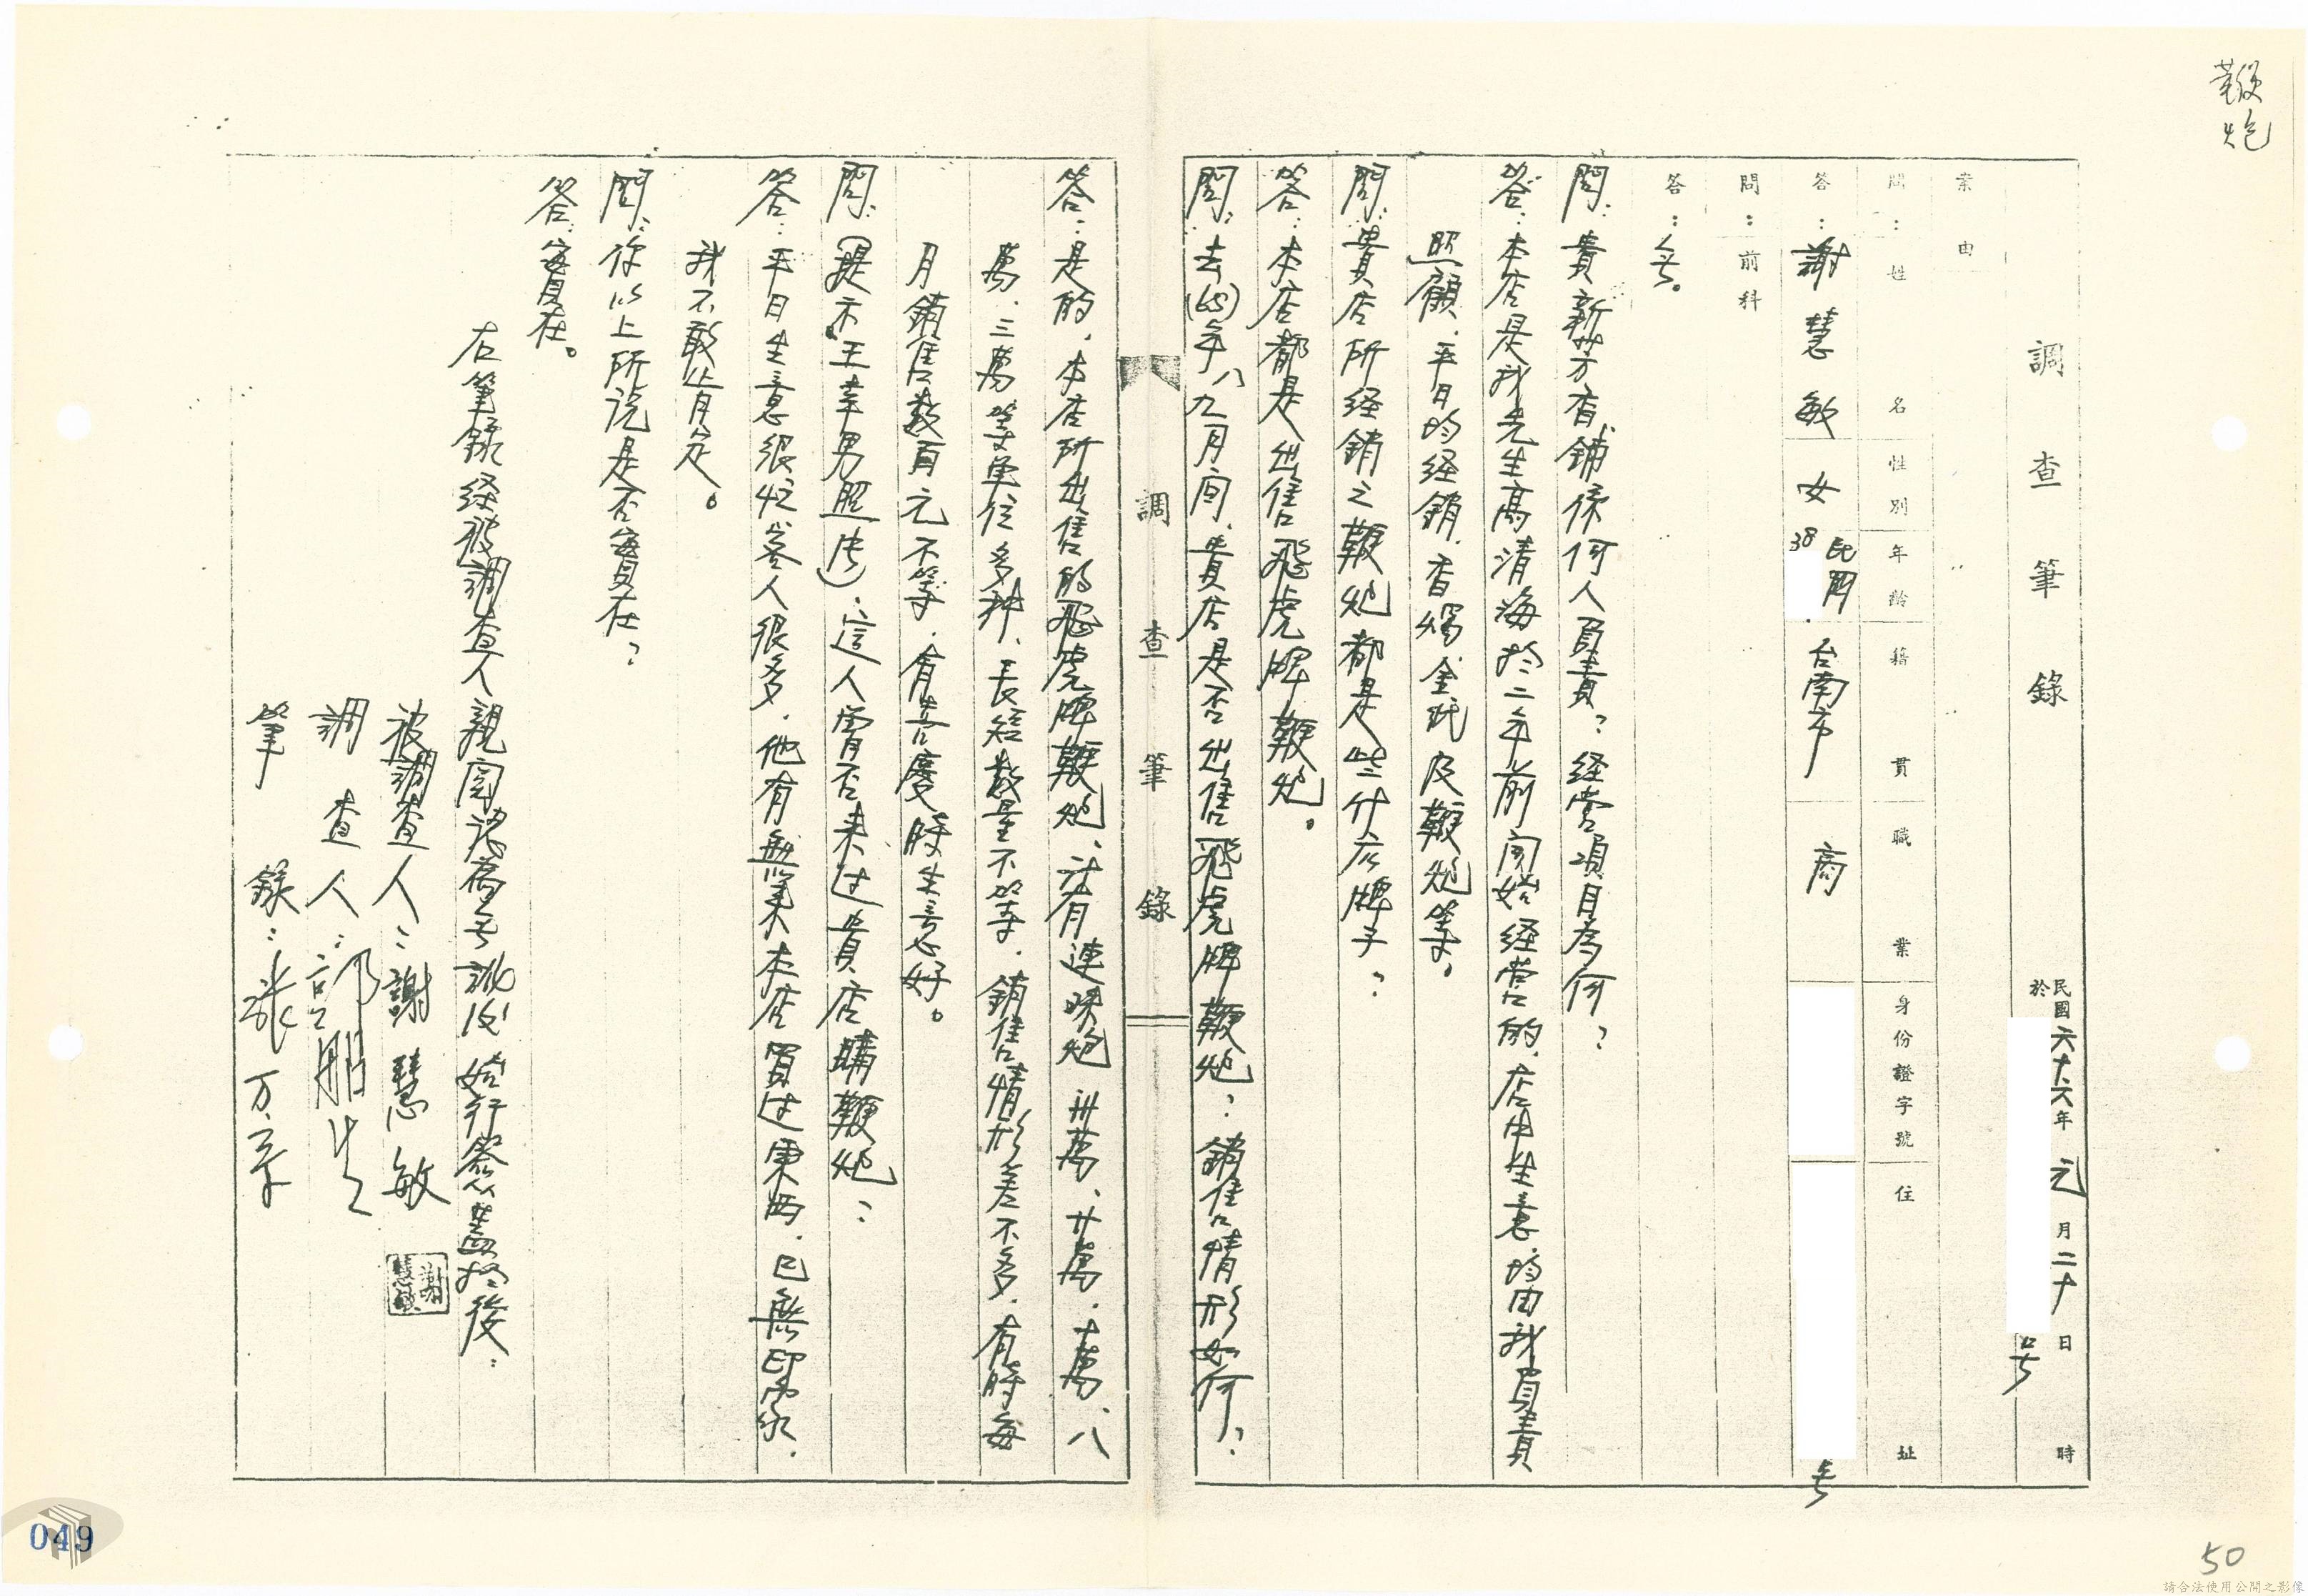 鞭炮
調查筆錄
民國六十六年元月二十日 時
於 号
案由
問:姓名 性別 年齡 籍貫 職業 身份證字號 住址
答:謝慧敏 女 38 民國 台南市 商 号
問:前科
答:无。
問:貴新芳香舖係何人負責?経营項目為何?
答:本店是我先生高清海於二年前開始経营的,店中生意均由我負責
照顧,平日均経銷,香燭金玳及鞭炮等。
問:貴店所経銷之鞭炮都是些什庅牌子?
答:本店都是出售飛虎牌鞭炮。
問:去(65)年八、九月间,貴店是否出售飛虎牌鞭炮?銷售情形如何?
調查筆錄
答:是的,本店所出售的飛虎牌鞭炮,計有連珠炮卅萬、廿萬、十萬、八
萬、三萬等單位多种、長短数量不等,銷售情形差不多,有時每
月銷售数百元不等,有喜慶時生意好。
問:(提示王幸男照片),這人曾否來过貴店購鞭炮?
答:平日生意很忙客人很多,他有無來本店買过東西,已無印象,
我不敢肯定。
問:你以上所说是否實在?
答:實在。
右筆錄経被調查人親閱認為无訛後始行簽蓋於後:
被調查人:謝慧敏
謝慧敏
調查人:
筆錄:張万章
049
50
請合法使用公開之影像